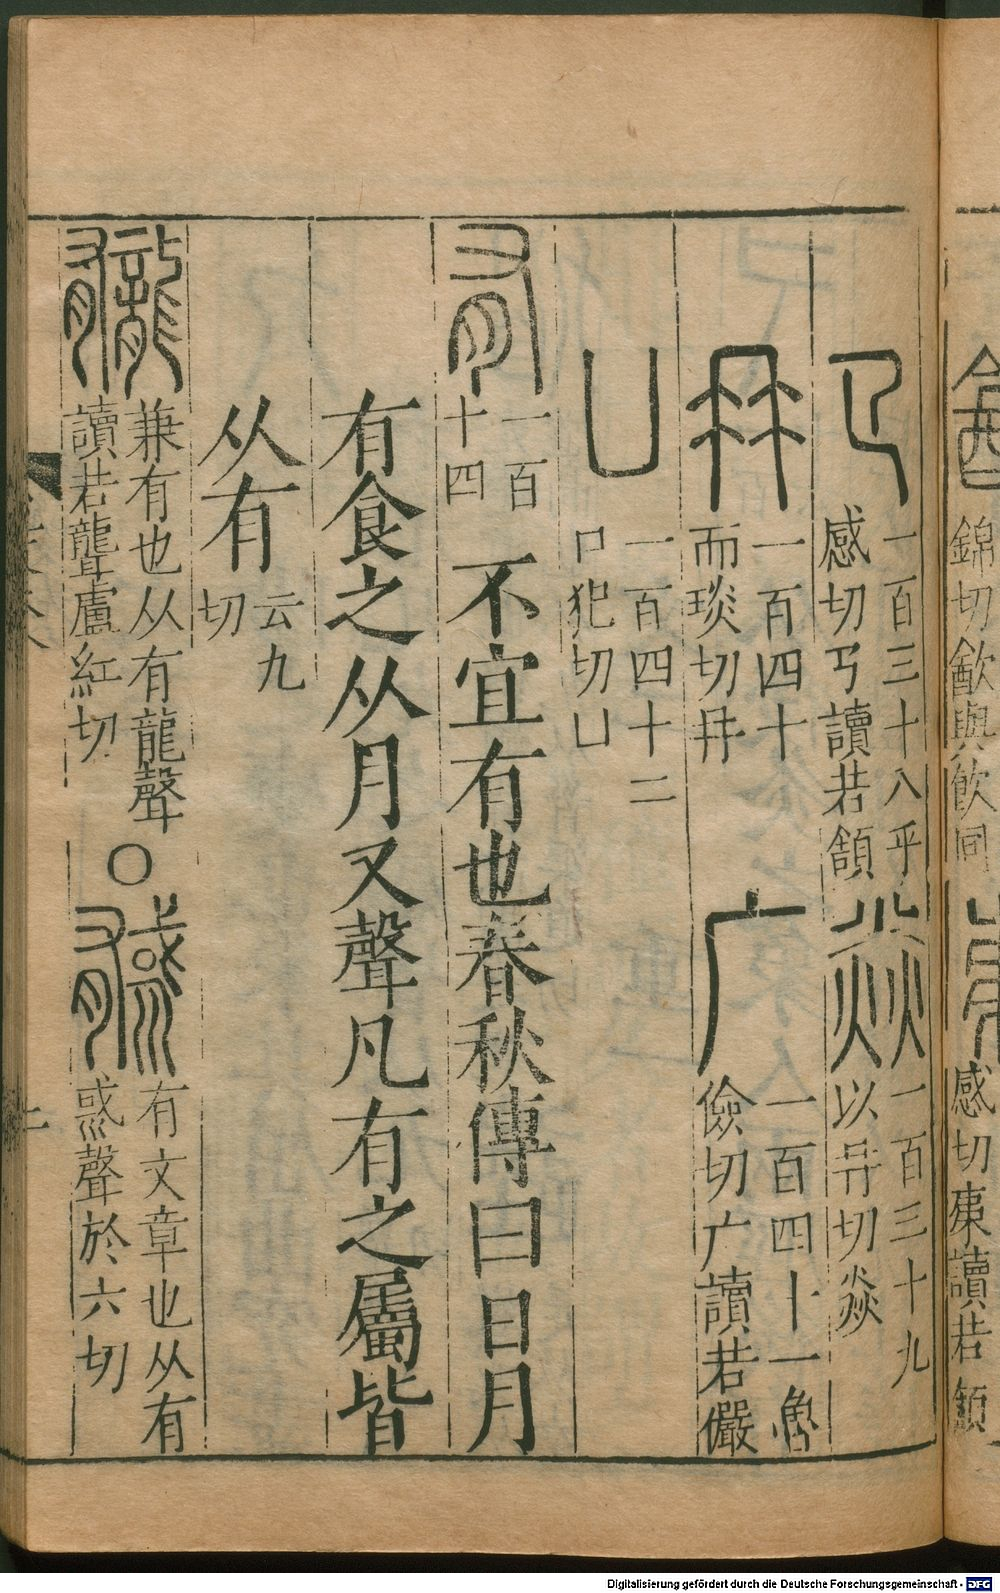 錦切㱃與飲同
感切㢴讀若頷
一百三十八乎
感切㔾讀若頷
一百三十九
以冄切焱
一百四十
而琰切冄
一百四十一魯
儉切广讀若儼
一百四十二
口犯切凵
一百
十四
不宜有也春秋傳曰日月
有食之从月又聲凡有之屬皆
从有
云九
切
兼有也从有龍聲
讀若聾盧紅切
〇
有文章也从有
惑聲於六切
Digitalisierung gefördert durch die Deutsche Forschungsgemeinschaft - DFG